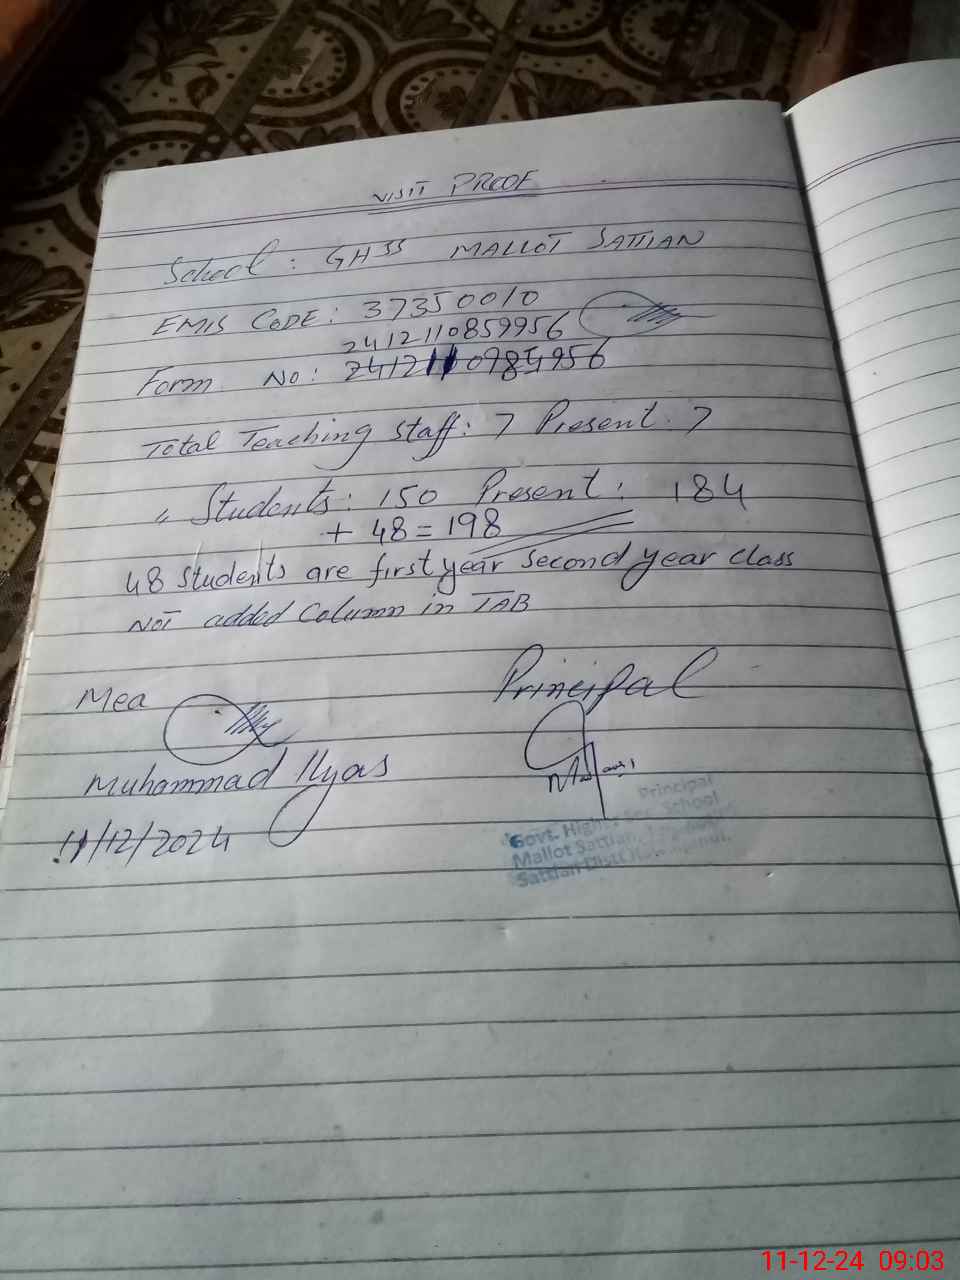 VISIT PROOF
School: GHSS MALLOT SATTIAN
EMIS CODE: 37350010
2412110859956
Form No: 2412110984956
Total Teaching staff: 7 Present: 7
" Students: 150 Present: 184
+ 48 = 198
48 Students are first year second year class
NOT added Column in TAB
Mea
Principal
Muhammad Ilyas
11/12/2024
Principal
Govt. High Sec. School
Mallot Sattian
Sattian Distt.
11-12-24 09:03